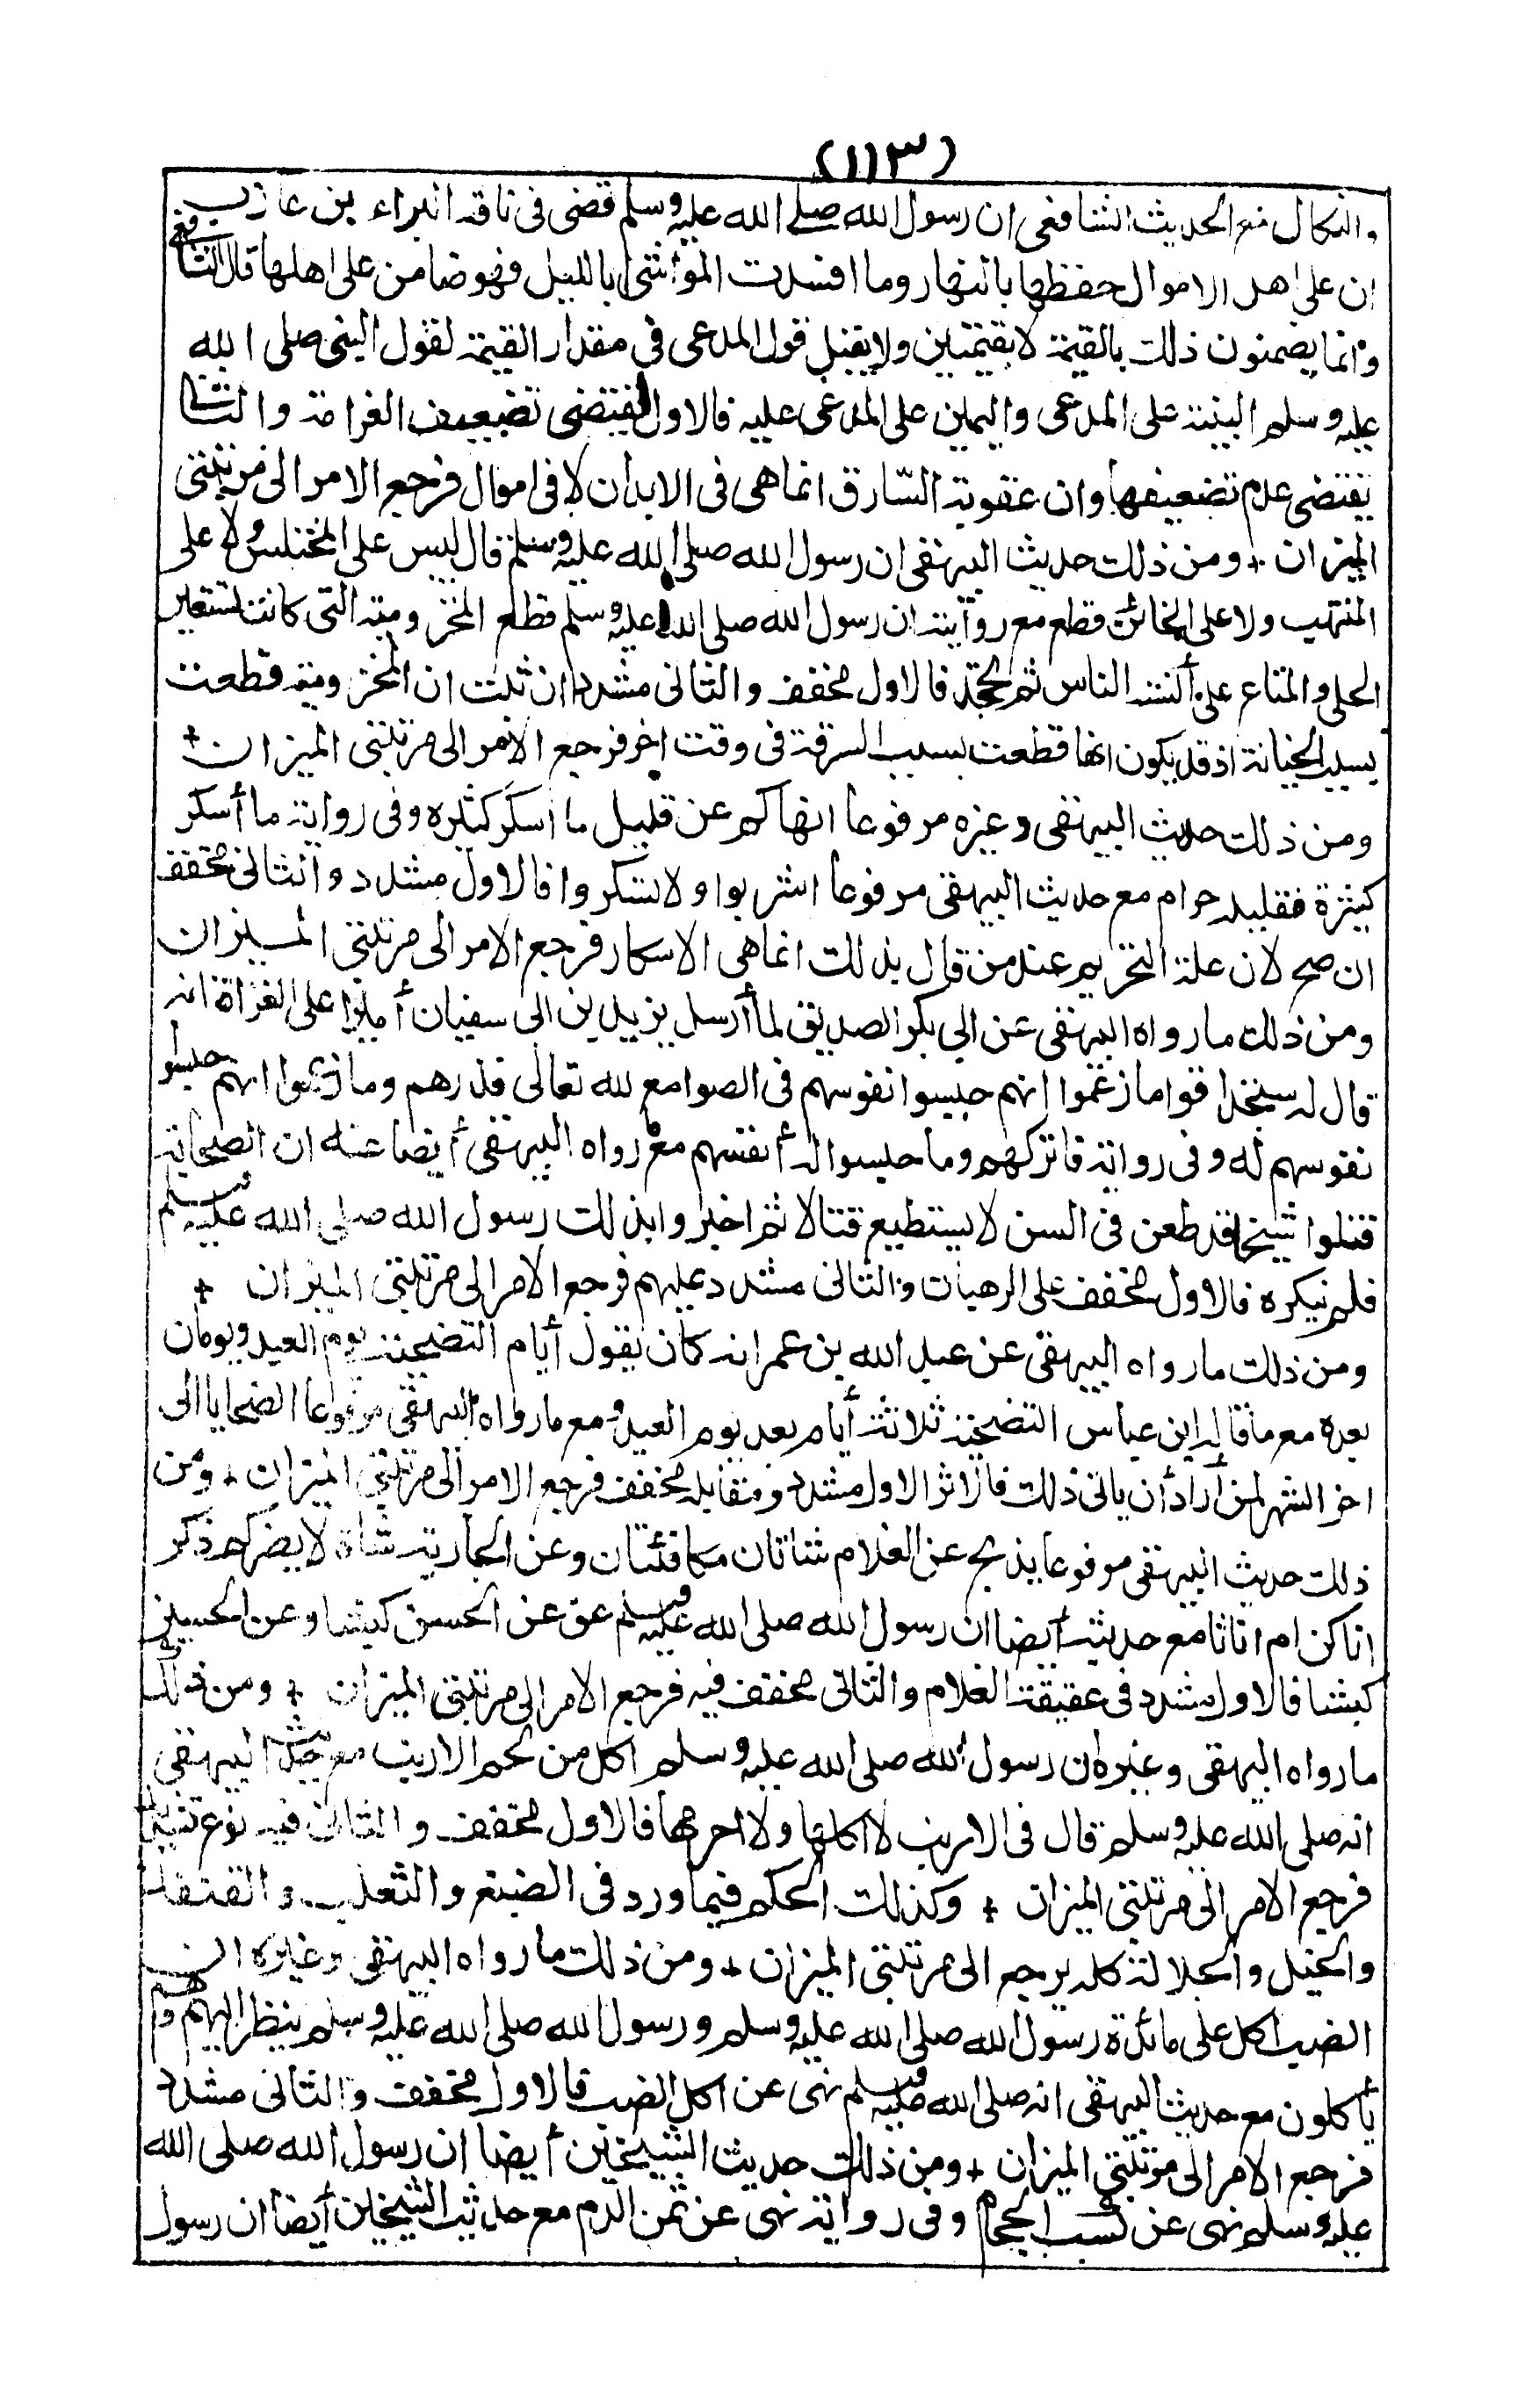 (١١٣)
والنكال مع الحديث الشافعى ان رسول الله صلے الله عليه وسلم قضى فى ناقة البراء بن عازب
ان على اهل الاموال حفظها بالنهار وما افسدت المواشى بالليل فهو ضامن على اهلها قال الشافعى
وانما يضمنون ذلك بالقيمة لا بقيمتين ولا يقبل قول المدعى فى مقدار القيمة لقول النبى صلى الله
عليه وسلم البينة على المدعى واليمين على المدعى عليه فالاول يقتضى تضعيف الغرامة والثانى
يقتضى عدم تضعيفها وان عقوبة السّارق انما هى فى الابدان لا فى اموال فرجع الامر الى مرتبتى
الميزان + ومن ذلك حديث البيهقى ان رسول الله صلى الله عليه وسلم قال ليس على المختلس ولا على
المنتهب ولا على الخائن قطع مع روايته ان رسول الله صلى الله عليه وسلم قطع المخزومية التى كانت تستعير
الحلى والمتاع على ألسنة الناس ثم تجحد فالاول مخفف والثانى مشدد ان ثبت ان المخزومية قطعت
بسبب الخيانة اذ قد يكون انها قطعت بسبب السرقة فى وقت اخر فرجع الامر الى مرتبتى الميزان +
ومن ذلك حديث البيهقى وغيره مرفوعا انهاكم عن قليل ما اسكر كثيره وفى رواية ما أسكر
كثيرة فقليله حرام مع حديث البيهقى مرفوعا اشربوا ولا تسكروا فالاول مشدد والثانى مخفف
ان صح لان علة التحريم عند من قال بذلك انما هى الاسكار فرجع الامر الى مرتبتى الميزان
ومن ذلك ما رواه البيهقى عن ابي بكر الصديق لما أرسل يزيد بن ابى سفيان أميرا على الغزاة انه
قال له ستجد اقواما زعموا انهم حبسوا نفوسهم فى الصوامع لله تعالى فذرهم وما زعموا انهم حبسوا
نفوسهم له وفى رواية فاتركهم وما حبسوا له أنفسهم مع ما رواه البيهقى أيضا عنه ان الصحابة
قتلوا شيخا قد طعن فى السن لا يستطيع قتالا ثم اخبروا بذلك رسول الله صلى الله عليه وسلم
فلم ينكره فالاول مخفف على الرهبان والثانى مشدد عليهم فرجع الامر الى مرتبتى الميزان +
ومن ذلك ما رواه البيهقى عن عبد الله بن عمر انه كان يقول أيام التضحية يوم العيد ويومان
بعده مع ما قاله ابن عباس التضحية ثلاثة أيام بعد يوم العيد ومع ما رواه البيهقى مرفوعا الضحايا الى
اخر الشهر لمن أراد أن ياتى ذلك فالاثر الاول مشدد ومقابله مخفف فرجع الامر الى مرتبتى الميزان + ومن
ذلك حديث البيهقى مرفوعا يذبح عن الغلام شاتان مكافئتان وعن الجارية شاة لا يضركم ذكر
انا كن ام اناثا مع حديث أيضا ان رسول الله صلى الله عليه وسلم عق عن الحسن كبشا وعن الحسين
كبشا فالاول مشدد فى عقيقة الغلام والثانى مخفف فيه فرجع الامر الى مرتبتى الميزان + ومن ذلك
ما رواه البيهقى وغيره ان رسول الله صلى الله عليه وسلم اكل من لحم الارنب مع حديث البيهقى
انه صلى الله عليه وسلم قال فى الارنب لا اكلها ولا احرمها فالاول مخفف والثانى فيه نوع
فرجع الامر الى مرتبتى الميزان + وكذلك الحكم فيما ورد فى الضبع والثعلب والقنفذ
والخيل والجلالة كله يرجع الى مرتبتى الميزان + ومن ذلك ما رواه البيهقى وغيره ان
الضب اكل على مائدة رسول الله صلى الله عليه وسلم ورسول الله صلى الله عليه وسلم ينظر اليهم وهم
يأكلون مع حديث البيهقى انه صلى الله عليه وسلم نهى عن اكل الضب فالاول مخفف والثانى مشدد
فرجع الامر الى مرتبتى الميزان + ومن ذلك حديث الشيخين أيضا ان رسول الله صلى الله
عليه وسلم نهى عن كسب الحجام وفى رواية نهى عن ثمن الدم مع حديث الشيخين أيضا ان رسول